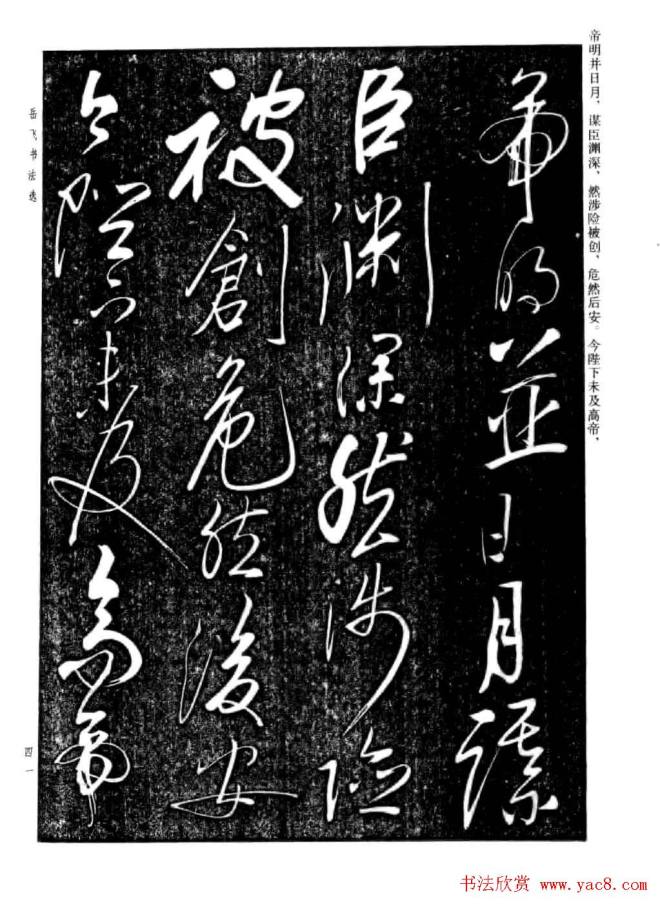 帝明并日月，谋臣渊深，然涉险被创，危然后安。今陛下未及高帝，
帝明並日月謀
臣渊深然涉險
被創危然後安
今陛下未及高帝
岳飞书法选
四一
书法欣赏 www.yac8.com